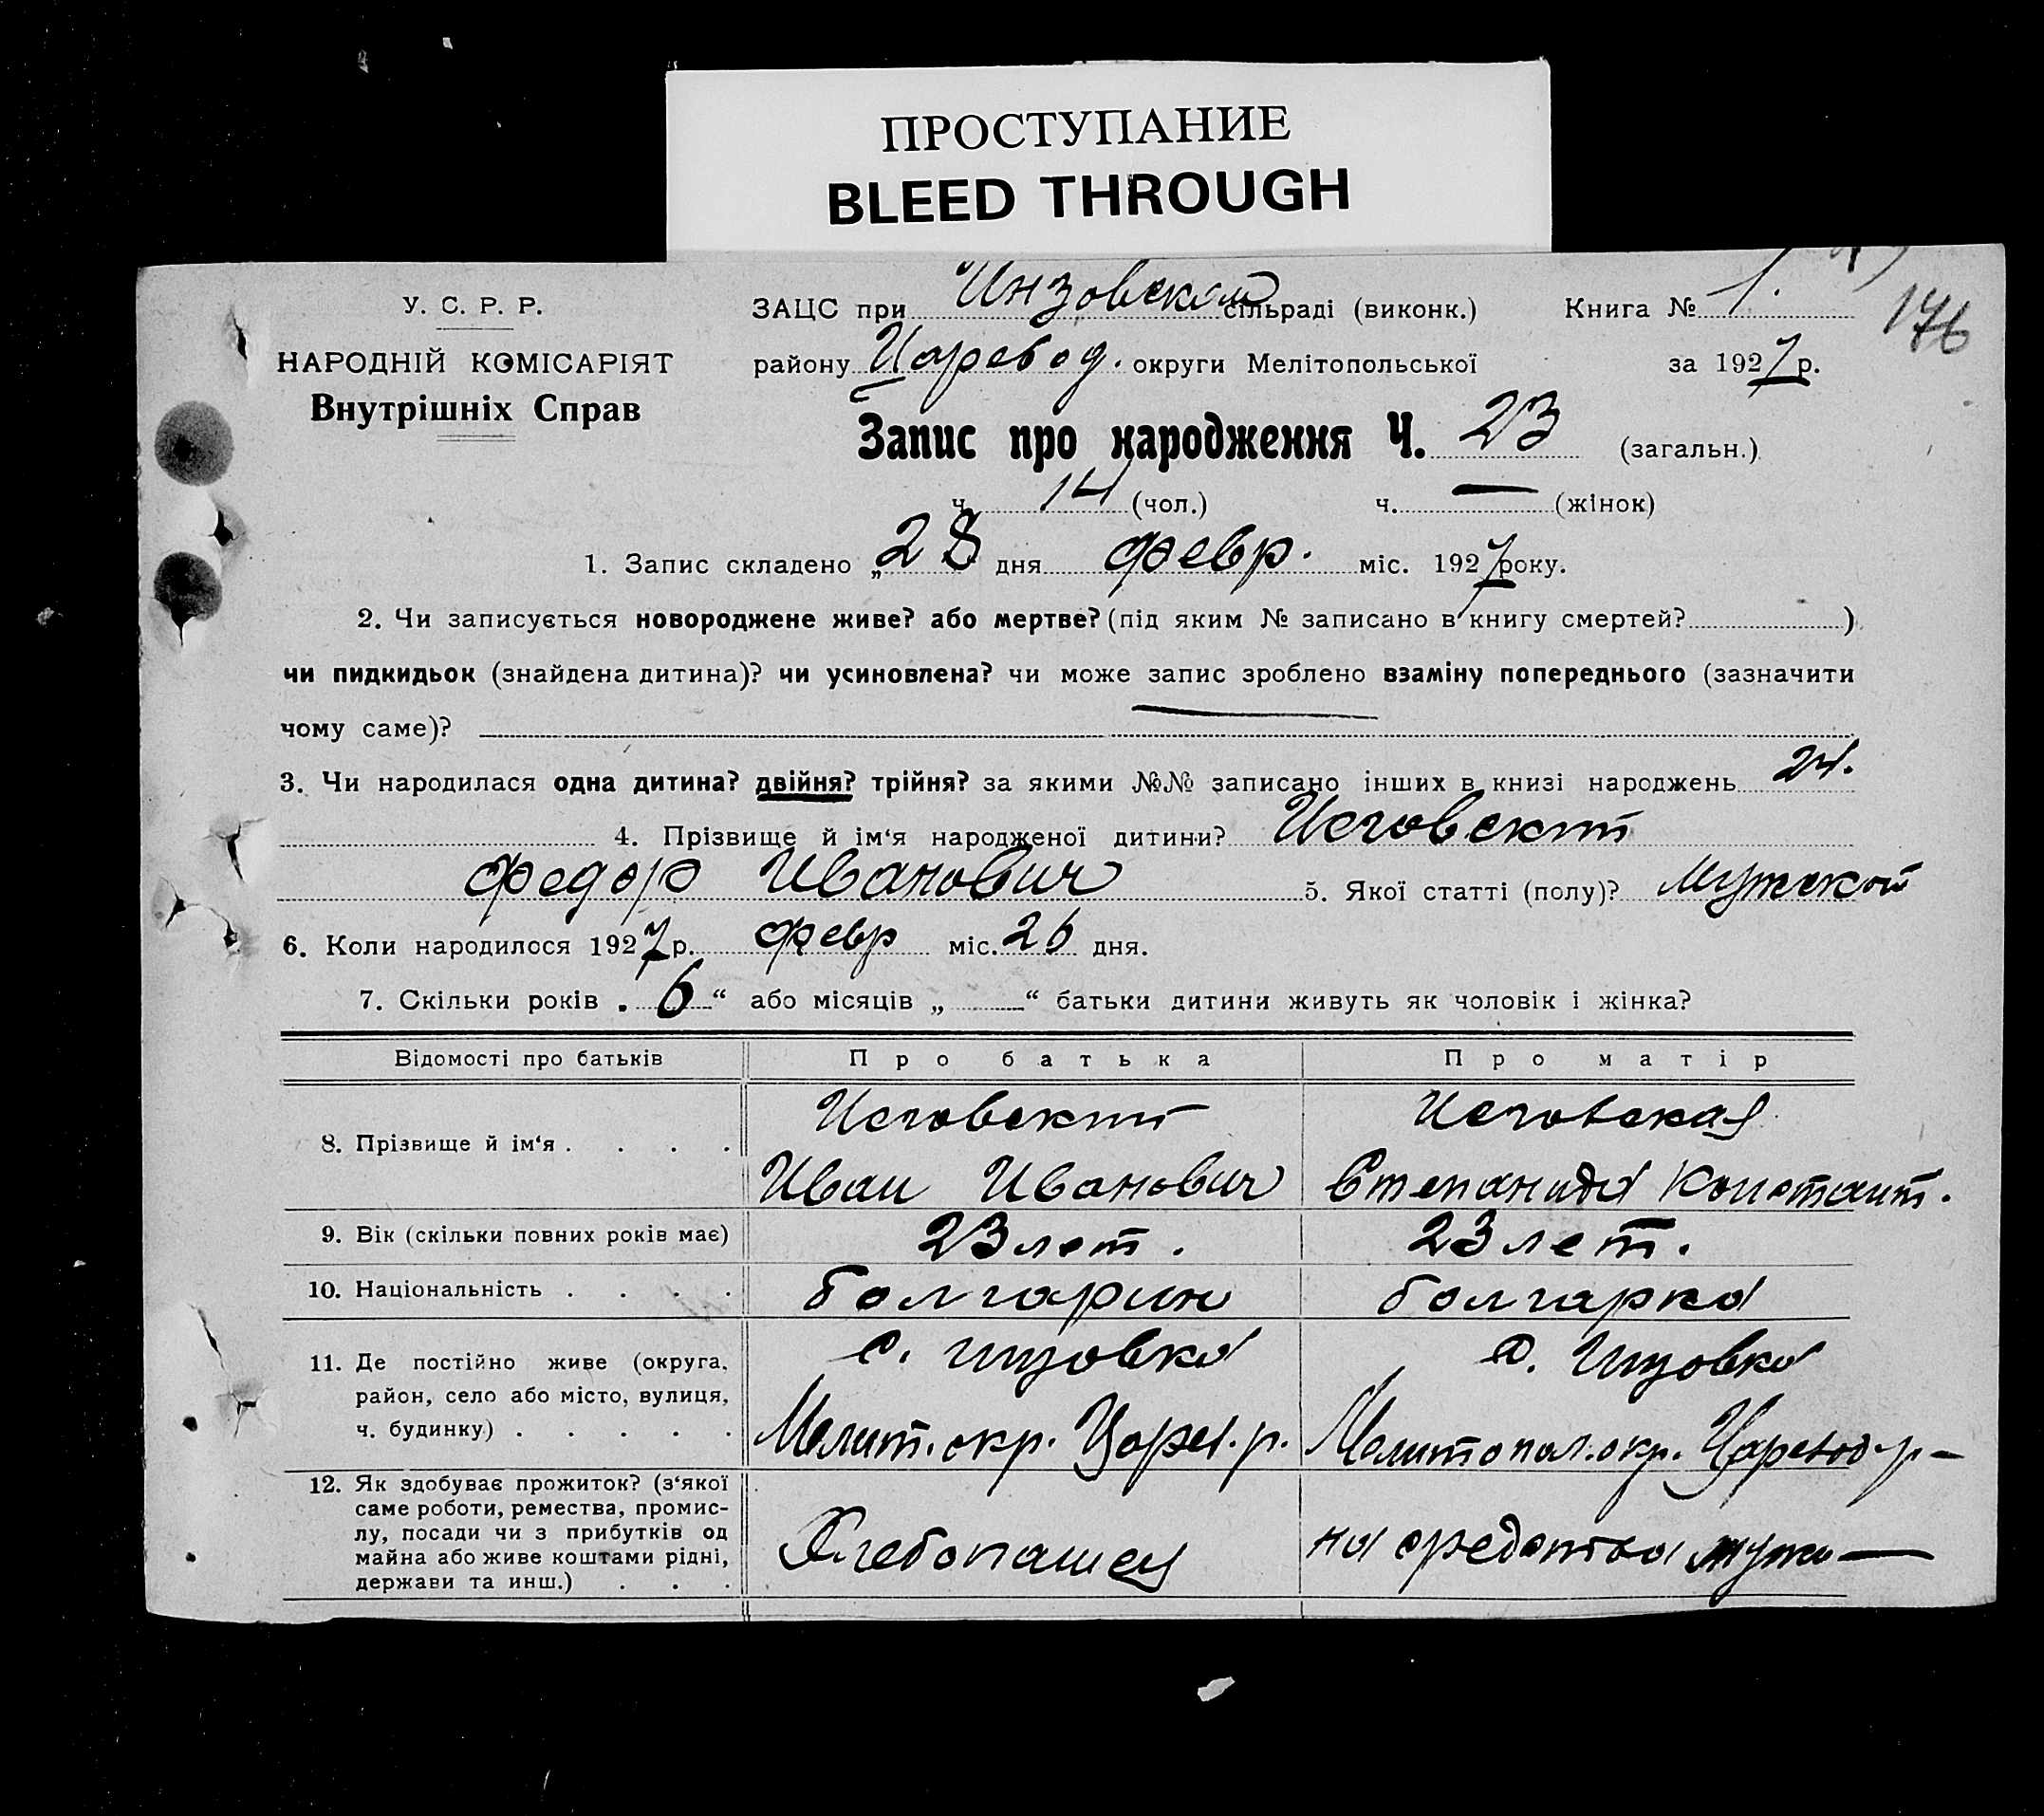 ПРОСТУПАНИЕ
BLEED THROUGH
У. С. Р. Р.
ЗАЦС при Инзовском сільраді (виконк.) Книга № 1. 176
НАРОДНІЙ КОМІСАРІЯТ
району Царевод. округи Мелітопольської за 1927 р.
Внутрішніх Справ
Запис про народження Ч. 23 (загальн.)
ч. 14 (чол.) ч. — (жінок)
1. Запис складено „28 дня февр. міс. 1927 року.
2. Чи записується новороджене живе? або мертве? (під яким № записано в книгу смертей? )
чи пидкидьок (знайдена дитина)? чи усиновлена? чи може запис зроблено взаміну попереднього (зазначити
чому саме)?
3. Чи народилася одна дитина? двійня? трійня? за якими №№ записано інших в книзі народжень 24.
4. Прізвище й ім‘я народженої дитини? Исговский
Федор Иванович 5. Якої статті (полу)? Мужской
6. Коли народилося 1927 р. февр міс. 26 дня.
7. Скільки років „ 6 “ або місяців „ “ батьки дитини живуть як чоловік і жінка?
Відомості про батьків Про батька Про матір
8. Прізвище й ім‘я . . . . Исговский Исговская
Иван Иванович Степанида Констант.
9. Вік (скільки повних років має) 23 лет. 23 лет.
10. Національність . . . . болгарин болгарка
11. Де постійно живе (округа, район, село або місто, вулиця, ч. будинку) . . . . . с. Инзовка с. Инзовка
Мелит. окр. Царев. р. Мелитопол. окр. Царевод р—
12. Як здобуває прожиток? (з‘якої
саме роботи, ремества, промис-
лу, посади чи з прибутків од
майна або живе коштами рідні,
держави та инш.) . . . Хлебопашец на средства мужа —